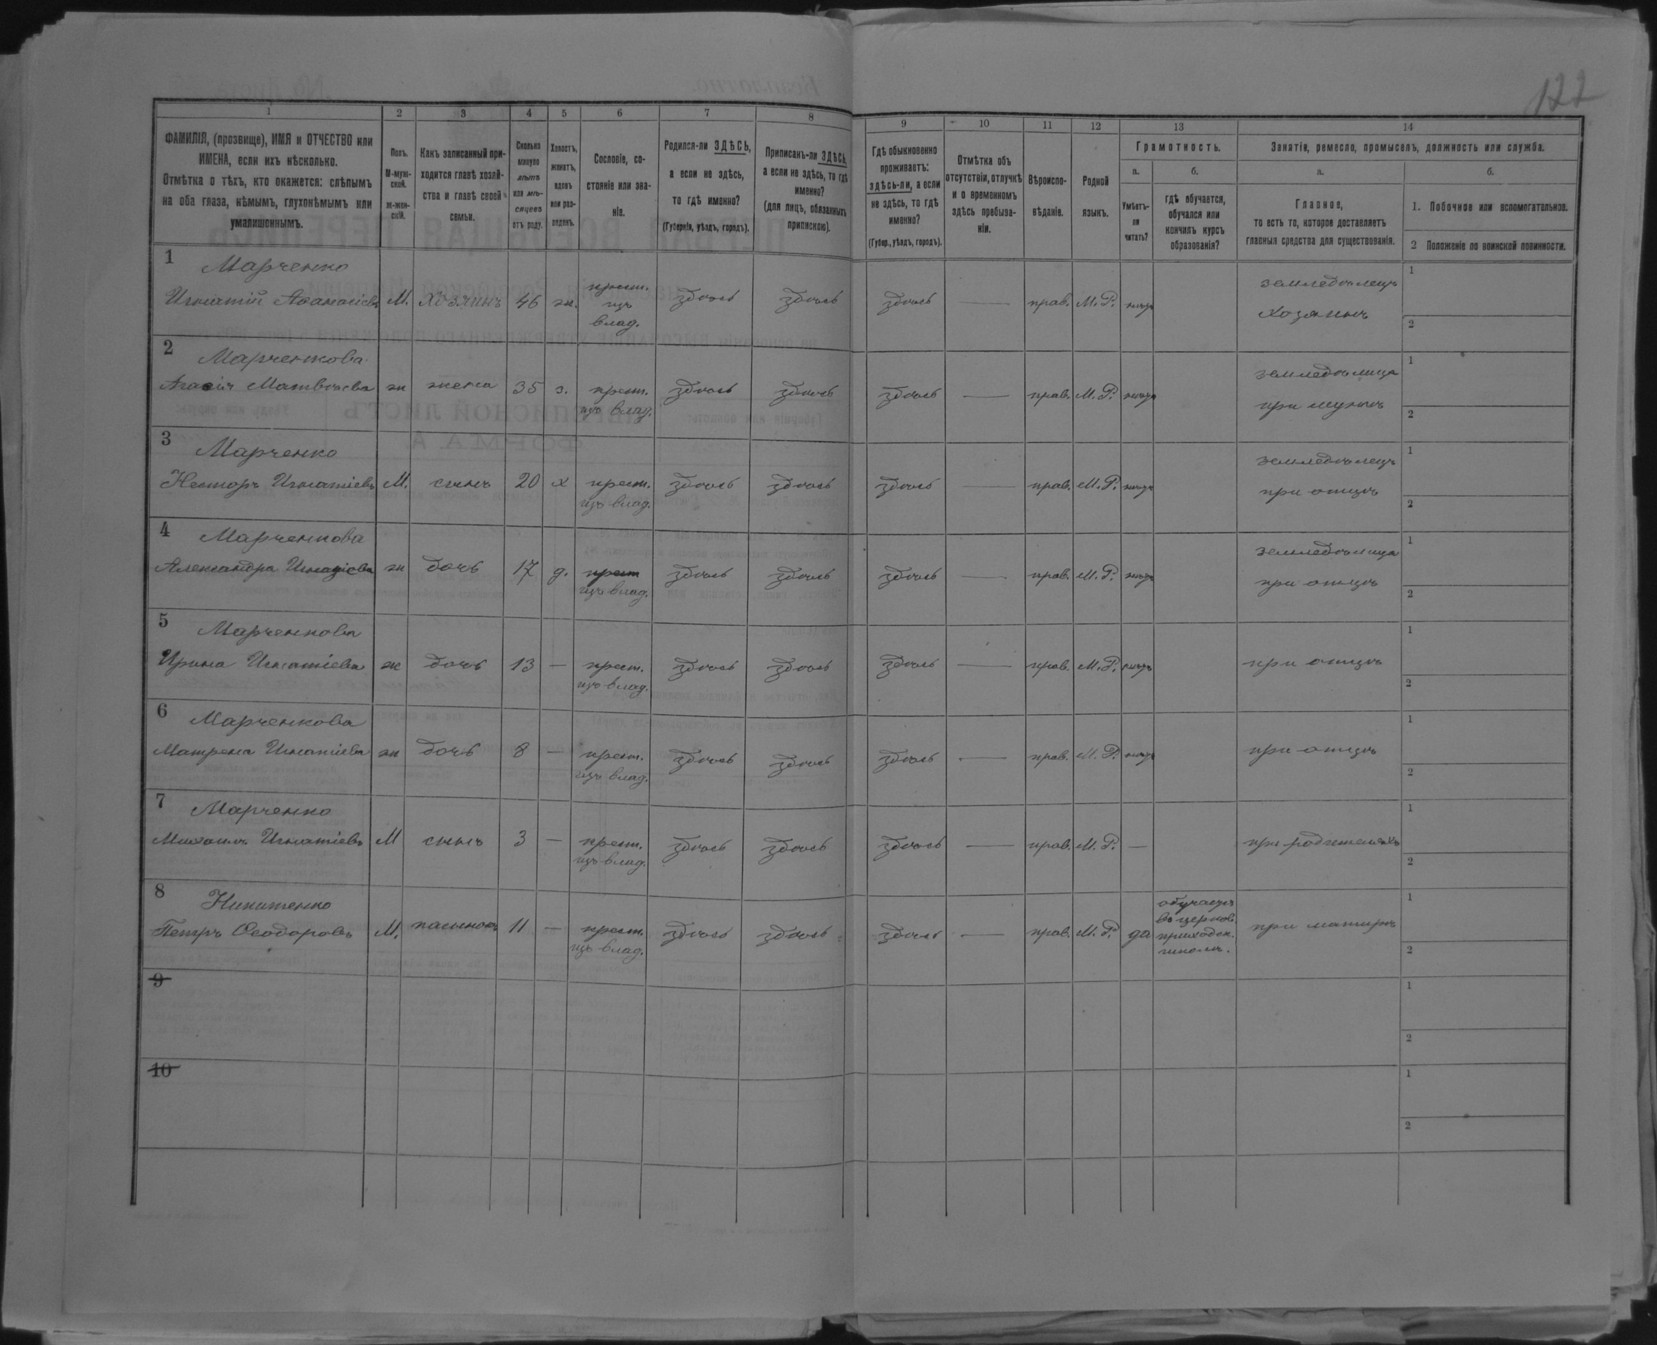 122
1 2 3 4 5 6 7 8 9 10 11 12 13 14
ФАМИЛІЯ, (прозвище), ИМЯ и ОТЧЕСТВО или
ИМЕНА, если ихъ нѣсколько.
Отмѣтка о тѣхъ, кто окажется: слѣпымъ
на оба глаза, нѣмымъ, глухонѣмымъ или
умалишоннымъ.
Полъ.
М-муж-
ской.
ж-жен-
скій.
Какъ записанный при-
ходится главѣ хозяй-
ства и главѣ своей
семьи.
Сколько
минуло
лѣтъ
или мѣ-
сяцевъ
отъ роду.
Холостъ,
женатъ,
вдовъ
или раз-
веденъ.
Сословіе, со-
стояніе или зва-
ніе.
Родился-ли ЗДѢСЬ,
а если не здѣсь,
то гдѣ именно?
(Губернія, уѣздъ, городъ).
Приписанъ-ли ЗДѢСЬ,
а если не здѣсь, то гдѣ
именно?
(для лицъ, обязанныхъ
припискою).
Гдѣ обыкновенно
проживаетъ:
здѣсь-ли, а если
не здѣсь, то гдѣ
именно?
(Губер., уѣздъ, городъ).
Отмѣтка объ
отсутствіи, отлучкѣ
и о временномъ
здѣсь пребыва-
ніи.
Вѣроиспо-
вѣданіе.
Родной
языкъ.
Грамотность.
а.
Умѣетъ-
ли
читать?
б.
гдѣ обучается,
обучался или
кончилъ курсъ
образованія?
Занятіе, ремесло, промыселъ, должность или служба.
а.
Главное,
то есть то, которое доставляетъ
главныя средства для существованія.
б.
1. Побочное или вспомогательное.
2 Положеніе по воинской повинности.
1 Марченко крест. земледѣлецъ 1
Игнатій Аѳанасіевъ М. хозяинъ 46 ж. изъ здѣсь здѣсь здѣсь — прав. М.Р. нѣтъ хозяинъ
влад. 2
2 Марченкова земледѣлица 1
Агаѳія Матвѣева ж жена 35 з. крест. здѣсь здѣсь здѣсь — прав. М.Р. нѣтъ при мужѣ
изъ влад. 2
3 Марченко земледѣлецъ 1
Несторъ Игнатіевъ М. сынъ 20 х крест. здѣсь здѣсь здѣсь — прав. М.Р. нѣтъ при отцѣ
изъ влад. 2
4 Марченкова земледѣлица 1
Александра Игнатіева ж дочь 17 д. крест здѣсь здѣсь здѣсь — прав. М.Р. нѣтъ при отцѣ
изъ влад. 2
5 Марченкова 1
Ирина Игнатіева ж дочь 13 — крест. здѣсь здѣсь здѣсь — прав. М.Р. нѣтъ при отцѣ
изъ влад. 2
6 Марченкова 1
Матрена Игнатіева ж дочь 8 — крест. здѣсь здѣсь здѣсь — прав. М.Р. нѣтъ при отцѣ
изъ влад. 2
7 Марченко 1
Михаилъ Игнатіевъ М сынъ 3 — крест. здѣсь здѣсь здѣсь — прав. М.Р. — при родителяхъ
изъ влад. 2
8 Никитенко обучается 1
Петръ Ѳеодоровъ М. пасынокъ 11 — крест. здѣсь здѣсь здѣсь — прав. М.Р. да въ церков. при матери
изъ влад. приходск.
школѣ. 2
9 1
2
10 1
2